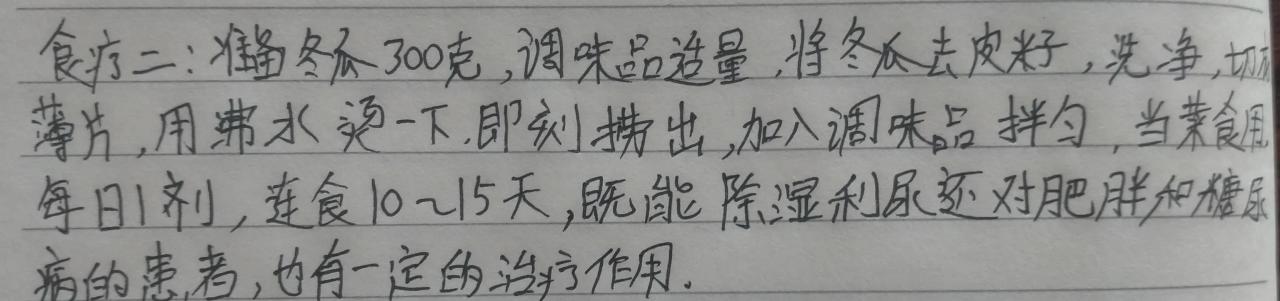 食疗二:准备冬瓜300克,调味品适量,将冬瓜去皮籽,洗净,切成
薄片,用沸水烫一下.即刻捞出,加入调味品拌匀,当菜食用
每日1剂,连食10~15天,既能除湿利尿还对肥胖和糖尿
病的患者,也有一定的治疗作用.